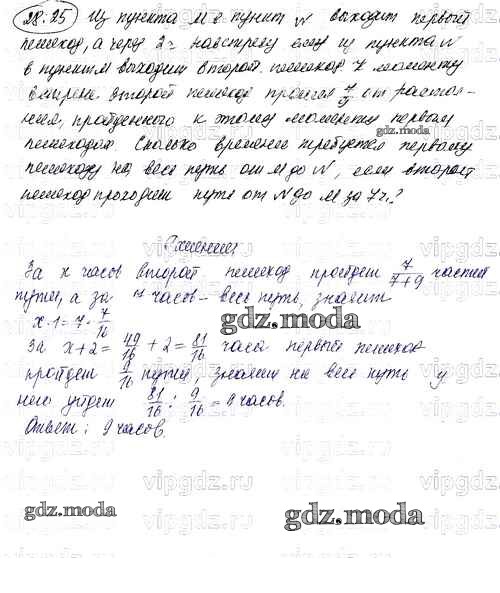 28.25 Из пункта М в пункт N выходит первый
пешеход, а через 2 ч навстречу ему из пункта N
в пункт М выходит второй пешеход. К моменту
встречи второй пешеход прошел 7/9 от расстоя-
ния, пройденного к этому моменту первым
пешеходом. Сколько времени требуется первому
пешеходу на весь путь от М до N, если второй
пешеход проходит путь от N до М за 7ч.?
Решение
За x часов второй пешеход пройдет 7/(7+9) частей
пути, а за 7 часов - весь путь, значит
x·1=7·7/16
За x+2=49/16+2=81/16 часа первый пешеход
пройдет 9/16 путей, значит на весь путь у
него уйдет 81/16 : 9/16 = 9 часов.
Ответ: 9 часов.
gdz.moda
gdz.moda
gdz.moda
gdz.moda
vipgdz.ru